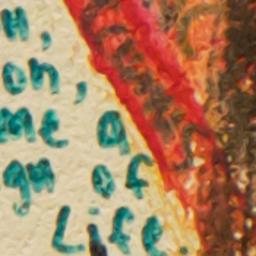 on,
me a
gn of
Life.